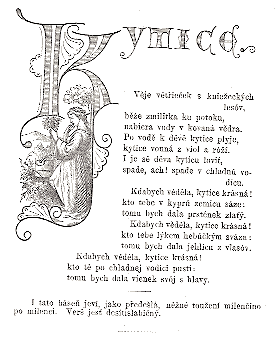 Kytice.
Věje větříček s knížeckých
lesóv,
běže zmilitka ku potoku,
nabiera vody v kovaná vědra.
Po vodě k děvě kytice plyje,
kytice vonná z viol a róží.
I je sě děva kyticu lovit,
spade, ach! spade v chladnú vo-
dicu.
Kdabych věděla, kytice krásná!
kto tebe v kyprú zemicu sáze:
tomu bych dala prstének zlatý.
Kdabych věděla, kytice krásná!
kto tebe lýkem hebúčkým sváza:
tomu bych dala jehlicu z vlasóv.
Kdabych věděla, kytice krásná!
kto tě po chladnej vodici pusti:
tomu bych dala vienek svój s hlavy.
I tato báseň jeví, jako předešlá, něžné toužení milenčino
po milenci. Verš jest desítislabičný.